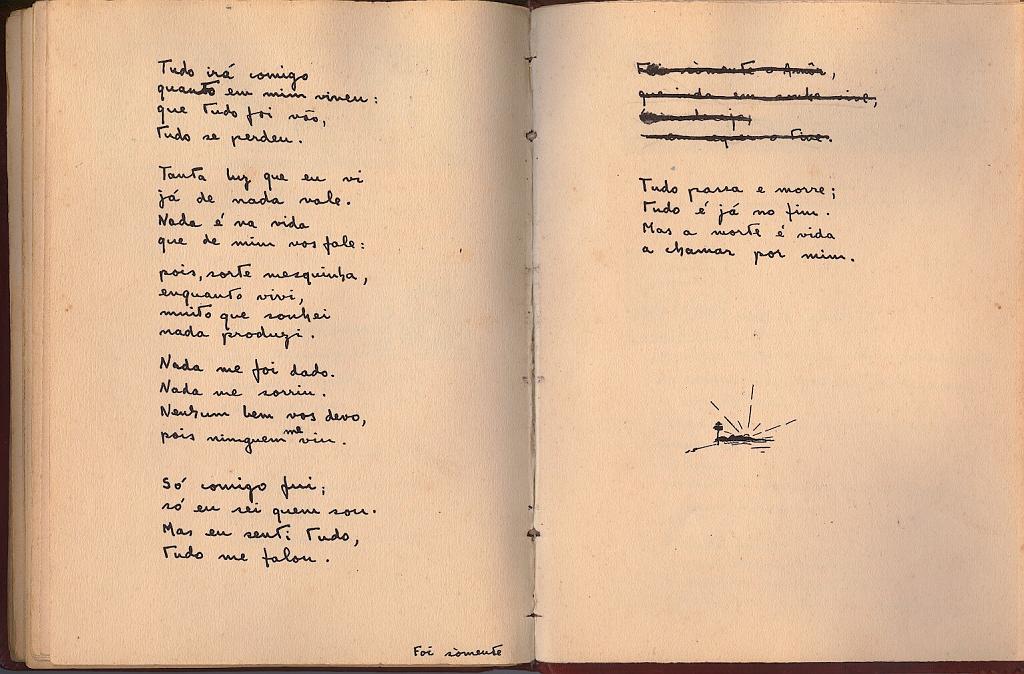 Tudo irá comigo
quanto em mim viveu:
que tudo foi vão,
tudo se perdeu.
Tanta luz que eu vi
já de nada vale.
Nada é na vida
que de mim vos fale:
pois, sorte mesquinha,
enquanto vivi,
muito que sonhei
nada produzi.
Nada me foi dado.
Nada me sorriu.
Nenhum bem vos devo,
pois ninguem me viu.
Só comigo fui;
só eu sei quem sou.
Mas eu senti tudo,
tudo me falou.
Foi sòmente
Foi sòmente o Amôr,
que em sonho vive,
o tive.
Tudo passa e morre;
tudo é já no fim.
Mas a morte é vida
a chamar por mim.